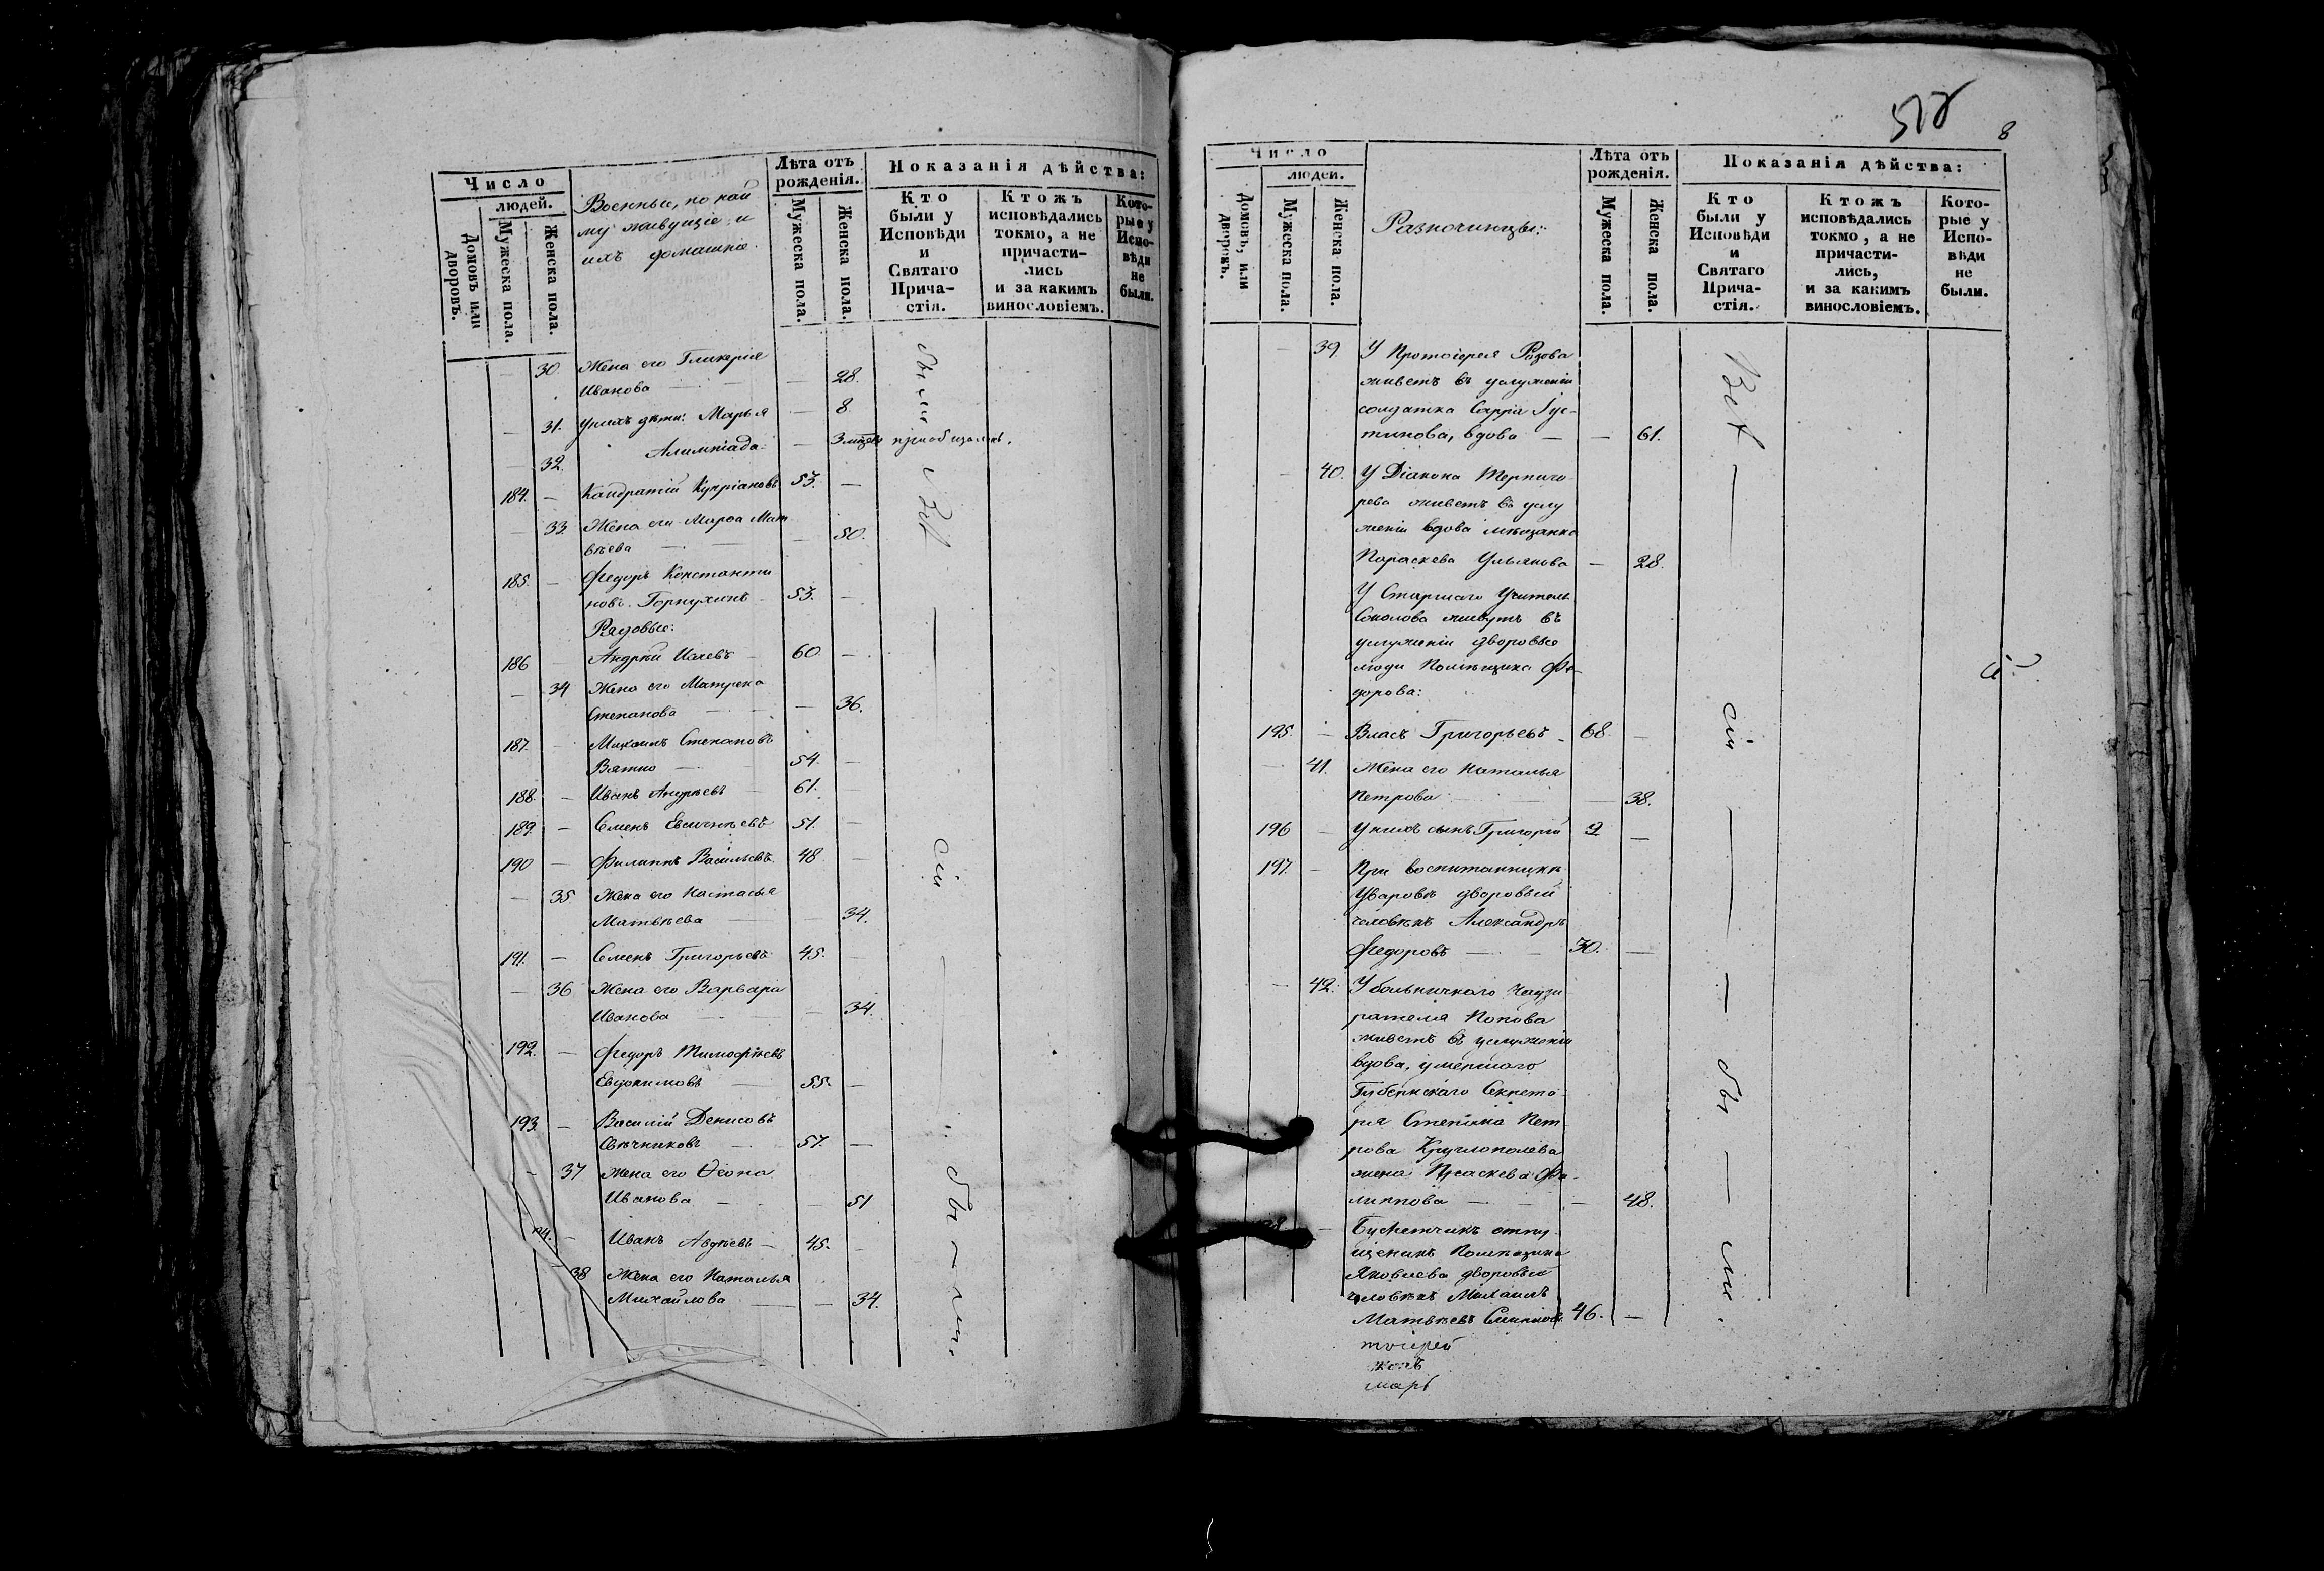 Число
людей.
Домовъ или дворовъ.
Мужеска пола.
Женска пола.
Военные, по най
му живущіе и
ихъ домашніе.
Лѣта отъ
рожденія.
Мужеска пола.
Женска пола.
Показанія дѣйства:
Кто
были у
Исповѣди
и
Святаго
Прича-
стія.
Ктожъ
исповѣдались
токмо, а не
причасти-
лись
и за какимъ
винословіемъ.
Кото-
рые у
Испо-
вѣди
не
были.
30. Жена его Гликерія
Иванова — — 28.
были
31. у нихъ дѣти: Марья — 8.
32. Алимпіада — 3 мѣсяц приобщалась.
184. — Кандратій Купріановъ 53. —
33. Жена его Марѳа Мат
вѣева — — 50.
185. — Федоръ Константи
новъ Горпухинъ 53. —
Рядовые:
186 — Андрѣй Исаевъ 60. —
— 34 Жена его Матрена
Степанова — — 36.
187. — Михаилъ Степановъ
Вятко — 54. —
188. — Иванъ Андреевъ 61. —
189. — Семенъ Евсичнѣевъ 51. —
190 — Филиппъ Васильевъ 48 —
— 35. Жена его Настасья
Матвѣева — — 34.
191. — Семенъ Григорьевъ 45. —
— 36 Жена его Варвара
Иванова — — 34.
192. — Федоръ Тимофѣевъ
Евдокимовъ — 55. —
193. — Василій Денисовъ
Свѣчниковъ — 57. —
— 37 Жена его Ѳеона
Иванова — — 51
194. — Иванъ Авдѣевъ — 45. —
38 Жена его Наталья
Михайлова — — 34.
Всѣ — сіи — бы — ли.
518
8
Число
людей.
Домовъ, или дворовъ.
Мужеска пола.
Женска пола.
Разночинцы:
Лѣта отъ
рожденія.
Мужеска пола.
Женска пола.
Показанія дѣйства:
Кто
были у
Исповѣди
и
Святаго
Прича-
стія.
Ктожъ
исповѣдались
токмо, а не
причасти-
лись,
и за какимъ
винословіемъ.
Кото-
рые у
Испо-
вѣди
не
были.
— 39. У Протоіерея Розова
живетъ въ услуженіи
солдатка Сарра Іус-
тинова, вдова — — 61.
— 40. У Діакона Терпиго
рева живетъ въ услу
женіи вдова мѣщанка
Параскева Ульянова — 28.
У Старшаго Учителя
Соколова живутъ въ
услуженіи дворовые
люди Помѣщика Фе-
дорова:
195. — Власъ Григорьевъ — 68. —
— 41. Жена его Наталья
Петрова — — 38.
196 — У нихъ сынъ Григорій 2 —
197. — При воспитанникѣ
Уваровѣ дворовый
человѣкъ Александръ
Федоровъ — 30. —
— 42. У больничнаго Надзи
рателя Попова
живетъ въ услуженіи
вдова, умершаго
Губернскаго Секрета
ря Степана Пет
рова Круглополева
жена Праскева Фи-
липпова — — 48.
198 — Буфетчикъ отпу
щеникъ Помѣщика
Яковлева дворовый
человѣкъ Михаилъ
Матвѣевъ 46. —
Всѣ — сіи — бы — ли.
тоіерей